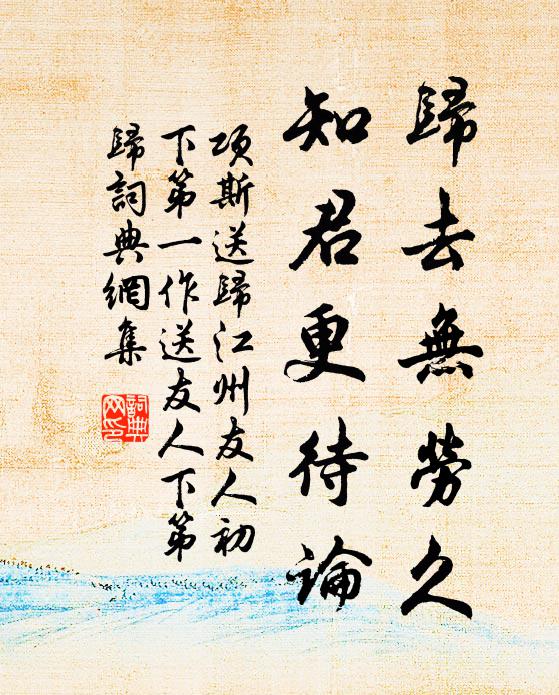 歸去無勞久
知君更待論
項斯送歸江州友人初
下第一作送友人下第
歸詞典網集
詞典
网印